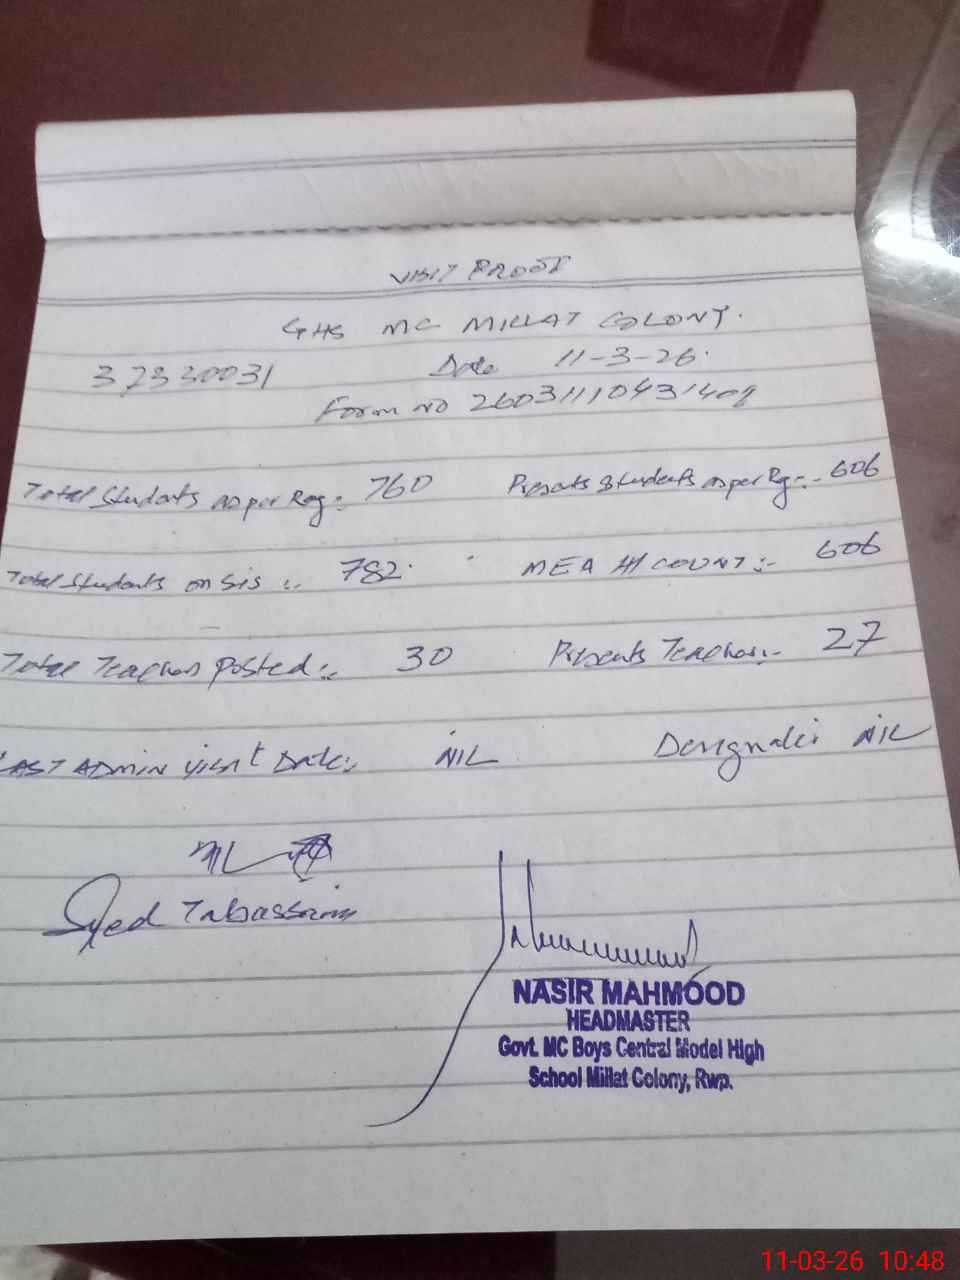 VISIT PROOF
GHS MC MILLAT COLONY.
37330031 Date 11-3-26.
Form no 26031110431402
Total Students as per Reg:- 760 Presents Students as per Rg:- 606
Total Students on Sis :- 782. MEA H/COUNT:- 606
Total Teachers Posted:- 30 Presents Teachers:- 27
LAST ADMIN Visit Date:- NIL Designatei NIL
Syed Tabassum
NASIR MAHMOOD
HEADMASTER
Govt. MC Boys Central Model High
School Millat Colony, Rwp.
11-03-26 10:48